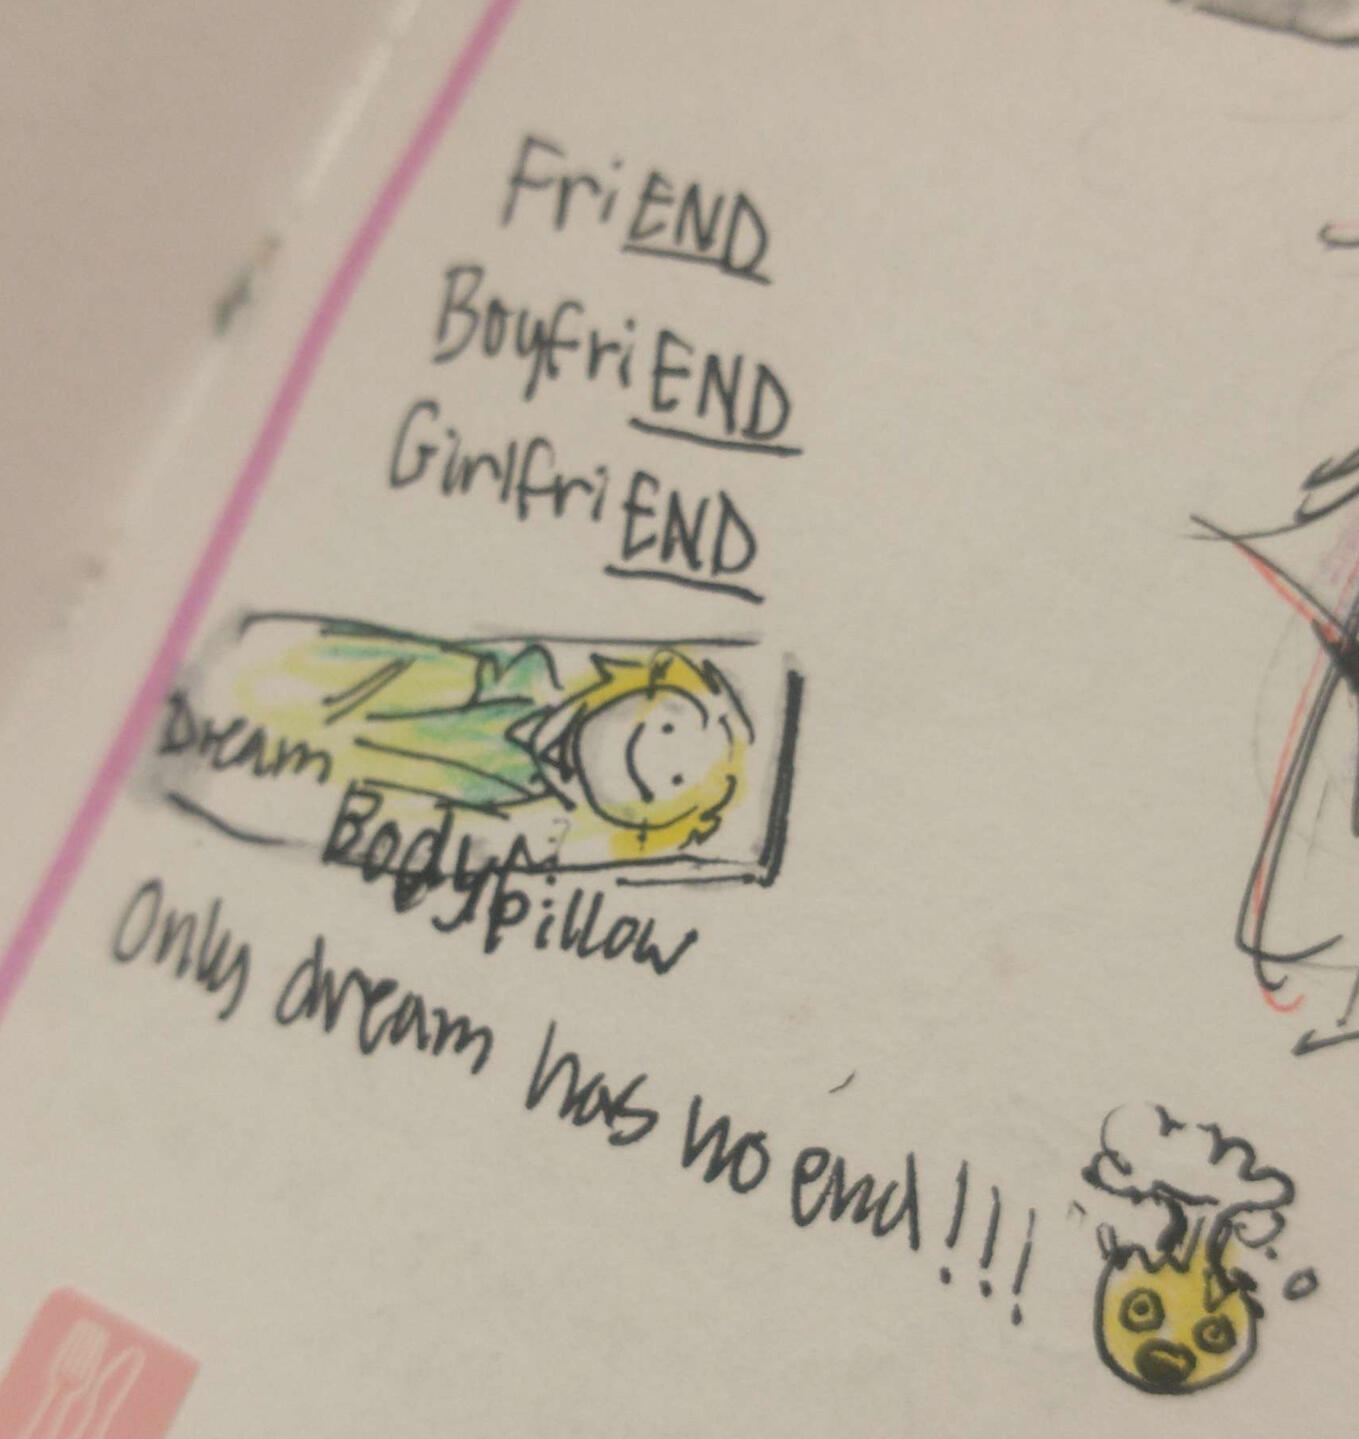 FriEND
BoyfriEND
GirlfriEND
Dream
Body pillow
Only dream has no end!!!